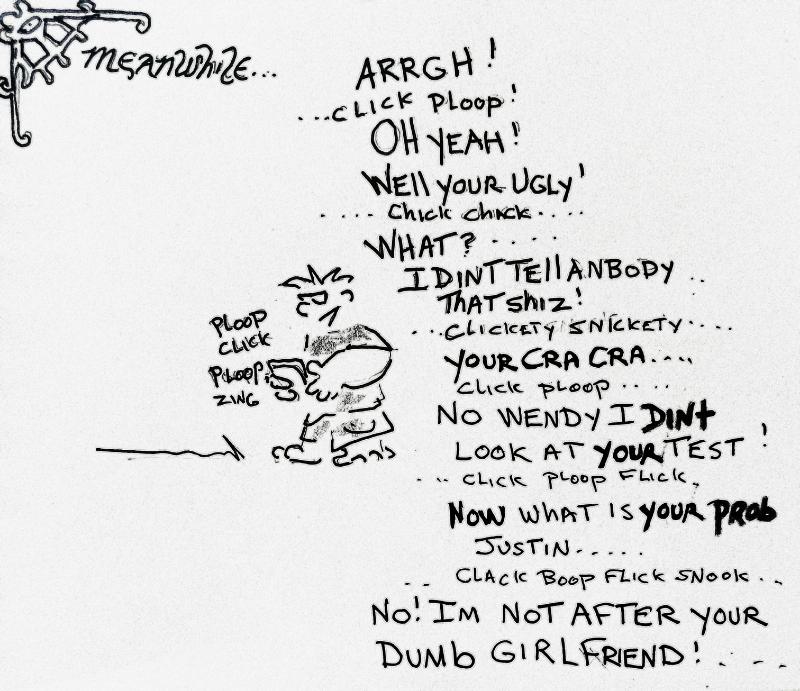 MEANWHILE...
ARRGH!
...CLICK PLOOP!
OH YEAH!
WEll YOUR UGLY!
.... Chick chack....
WHAT? ....
I DINT TEll ANBODY ..
ThAT Shiz!
...CLICKETY SNICKETY....
YOUR CRA CRA....
CLICK PLOOP ....
NO WENDY I DINt
LOOK AT YOUR TEST!
... CLICK PLOOP FLICK.
NOW WHAT IS YOUR PROb
JUSTIN.....
.. CLACK BOOP FLICK SNOOK ...
NO! IM NOT AFTER YOUR
DUMb GIRLFRIEND! ....
PLOOP
CLICK
PLOOP
ZING